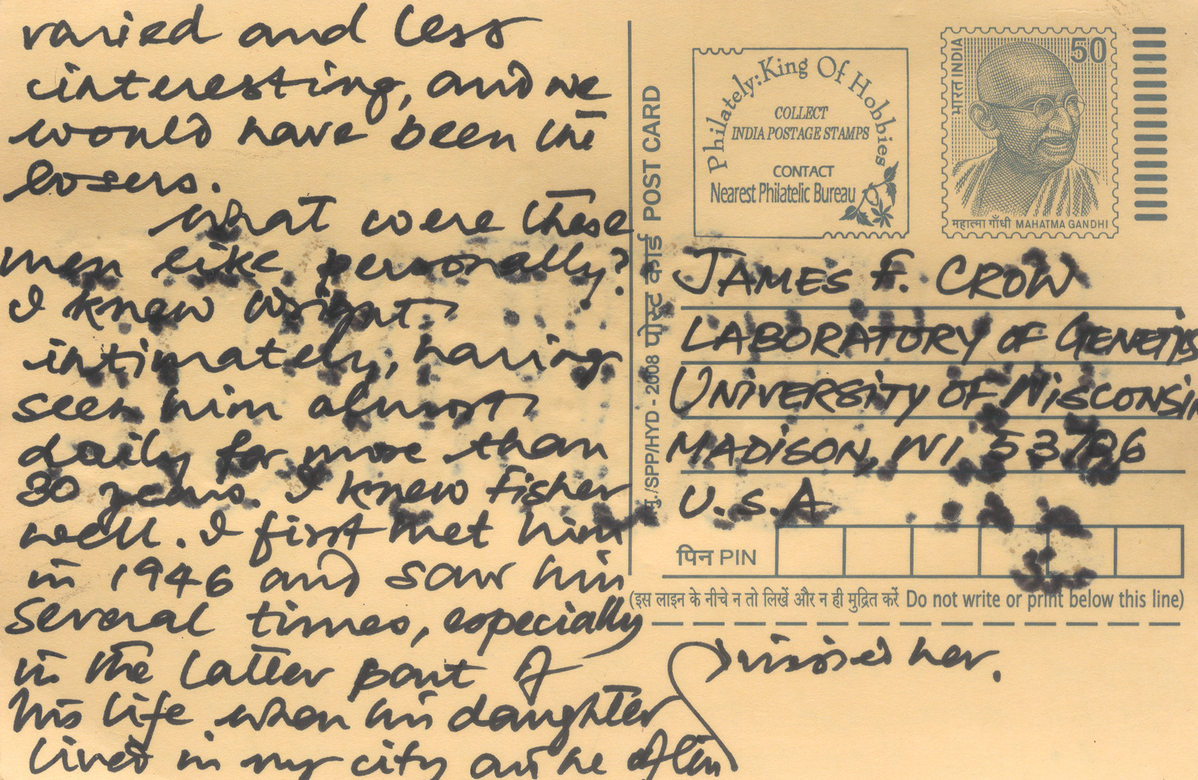 varied and less
interesting, and we
would have been the
losers.
What were these
men like, personally?
I knew Wright
intimately, having
seen him almost
daily for more than
30 years. I knew Fisher
well. I first met him
in 1946 and saw him
several times, especially
in the latter part of
his life when his daughter
lived in my city and he often
visited her.
भारतीय डाक पोस्ट कार्ड POST CARD
मु./SPP/HYD - 2008
Philately: King Of Hobbies
COLLECT
INDIA POSTAGE STAMPS
CONTACT
Nearest Philatelic Bureau
भारत INDIA
50
महात्मा गाँधी MAHATMA GANDHI
JAMES F. CROW
LABORATORY OF GENETICS
UNIVERSITY OF WISCONSIN
MADISON, WI 53706
U.S.A
पिन PIN
(इस लाइन के नीचे न तो लिखें और न ही मुद्रित करें Do not write or print below this line)